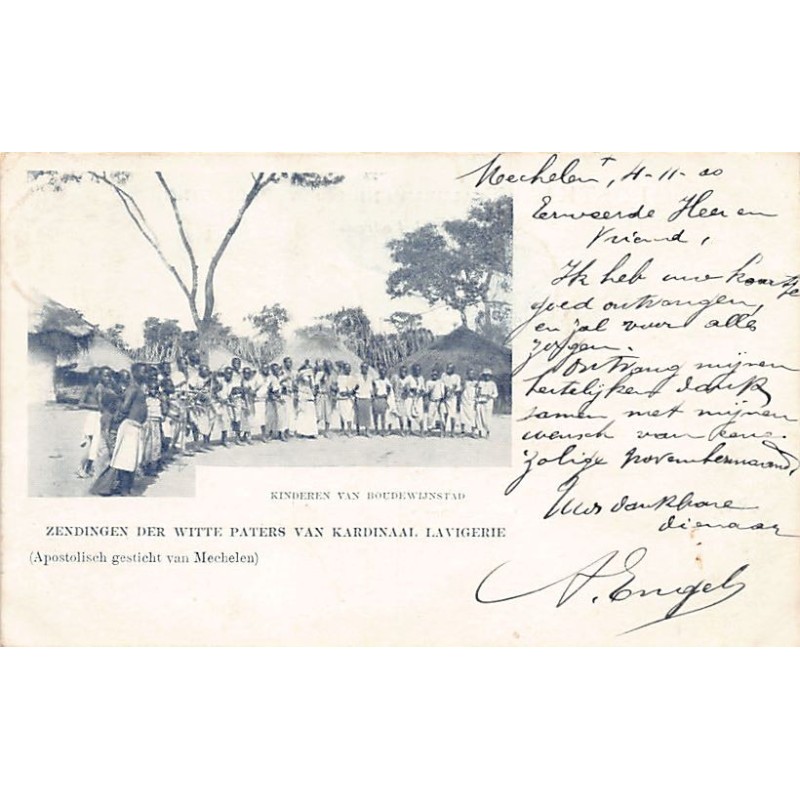 KINDEREN VAN BOUDEWIJNSTAD
ZENDINGEN DER WITTE PATERS VAN KARDINAAL LAVIGERIE
(Apostolisch gesticht van Mechelen)
Mechelen, 4-11-00
Eerweerde Heer en
Vriend,
Ik heb uwe kaartje
goed ontvangen,
en zal voor alles
zorgen.
Ontvang mijnen
hertelijken dank
samen met mijnen
wensch van eene
zalige novembermaand,
Uws dankbare
dienaar
A. Engels